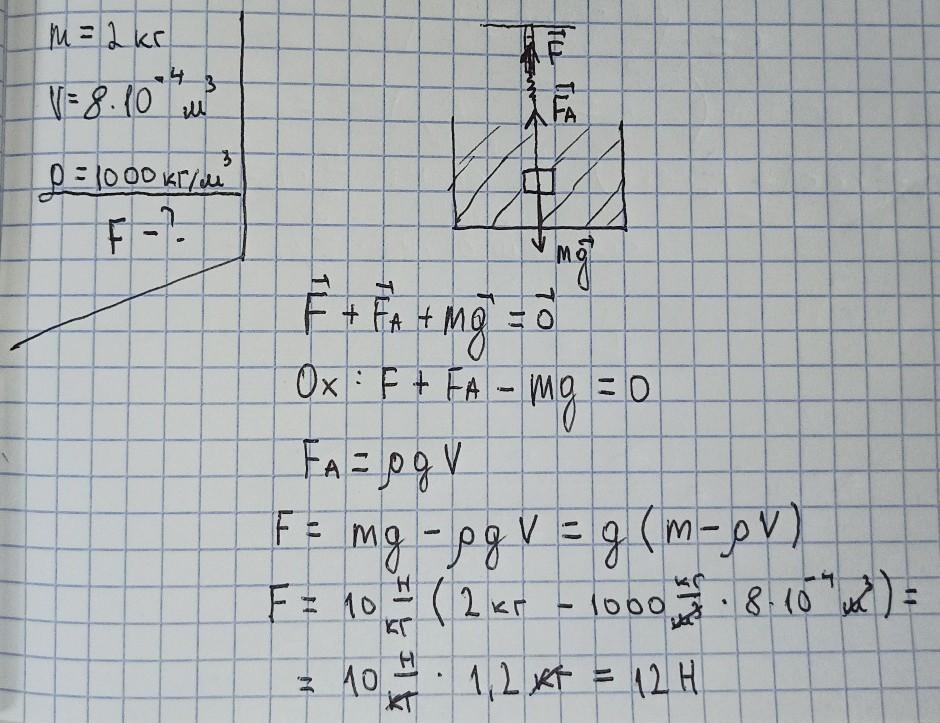 m = 2 кг
V = 8 · 10⁻⁴ м³
ρ = 1000 кг/м³
F - ?
F⃗
F⃗A
mg⃗
F⃗ + F⃗A + mg⃗ = 0⃗
Ox : F + FA - mg = 0
FA = ρgV
F = mg - ρgV = g(m - ρV)
F = 10 Н/кг (2 кг - 1000 кг/м³ · 8 · 10⁻⁴ м³) =
= 10 Н/кг · 1,2 кг = 12 Н